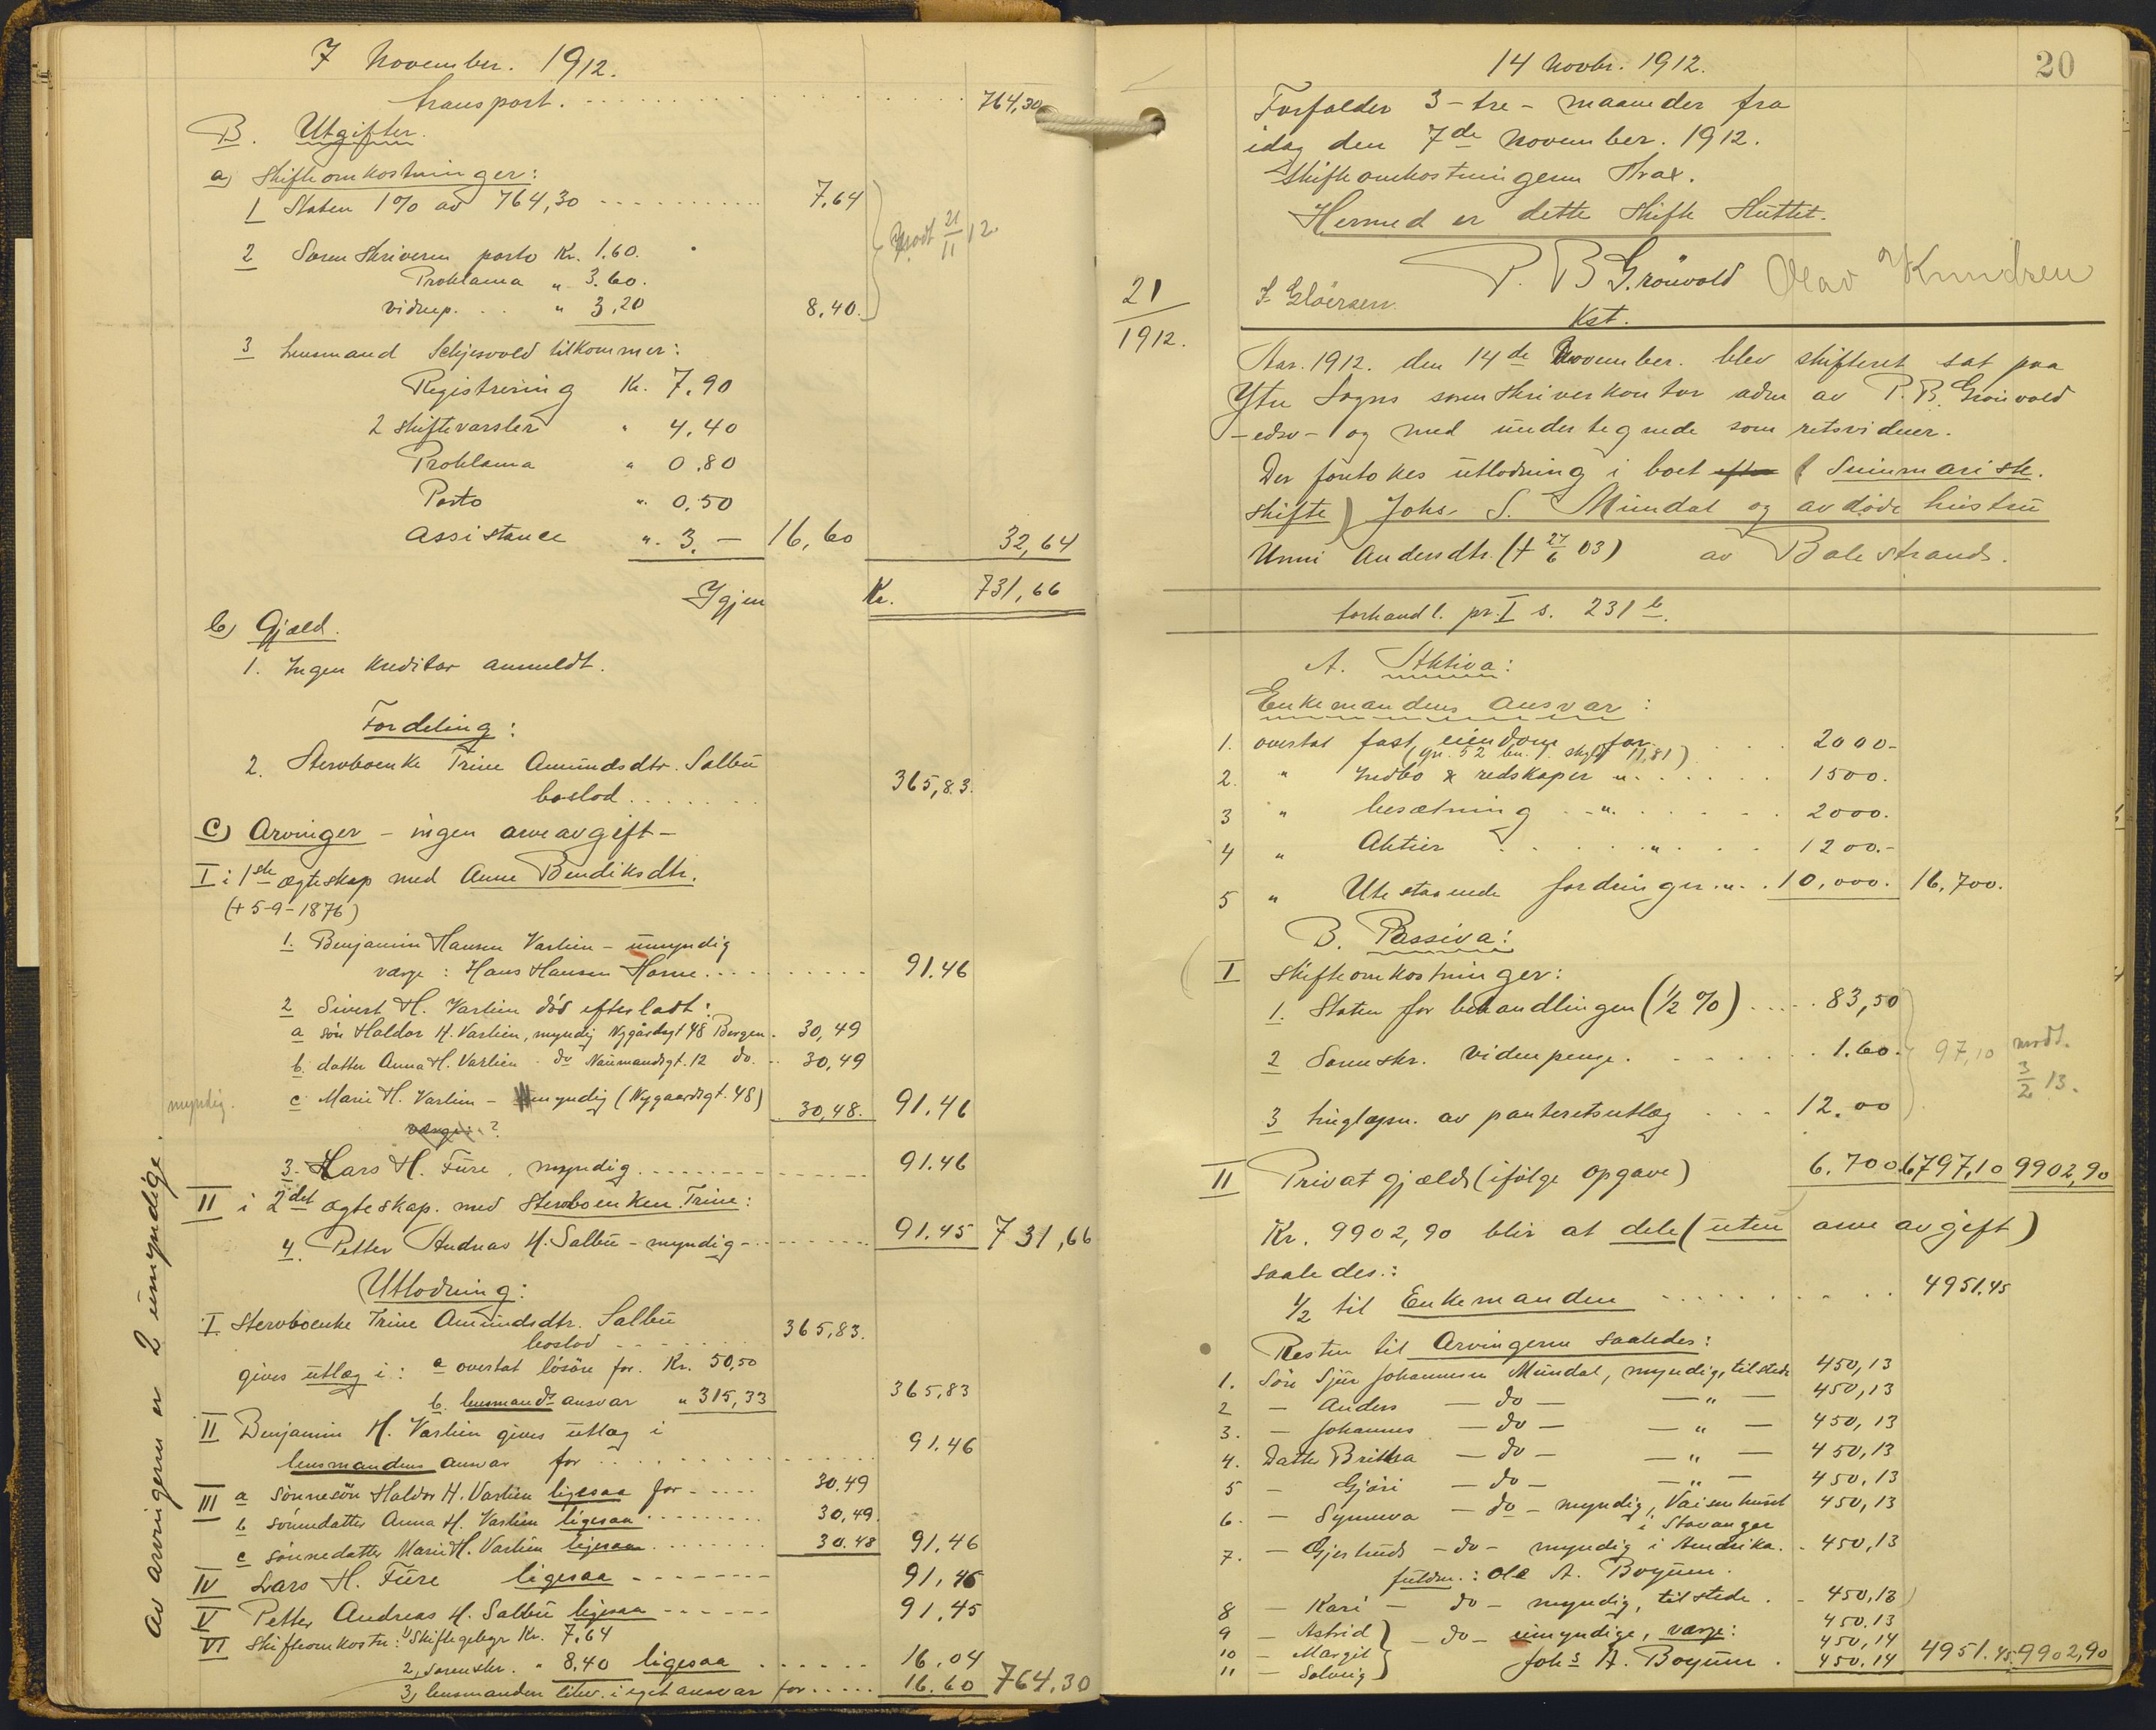 7 November. 1912.
transport. 764,30
B. Utgifter.
a) Skifteomkostninger:
1 Staten 1% av 764,30 7,64
2 Sorenskriveren porto Kr. 1.60.
Proklama " 3.60.
vidnep. " 3,20 8,40.
modt 21/11 12.
3 Lensmand tilkommer:
Registrering Kr. 7,90
2 skiftevarsler " 4,40
Proklama " 0,80
Porto " 0,50
Assistance " 3.— 16,60 32,64
Igjen Kr. 731,66
b) Gjæld.
1. Ingen kreditor anmeldt.
Fordeling:
2. Stervboenke Trine Amundsdtr. Salbu
boslod 365,83.
C) Arvinger - ingen arveavgift -
I i 1ste ægteskap med Anne Bendiksdtr.
(+ 5-9-1876)
1. Benjamin Hansen Varlien - umyndig
værge: Hans Hansen Horne 91.46
2 Sivert H. Varlien død efterladt:
a søn Haldor H. Varlien, myndig Nygårdsgt 48 Bergen. 30,49
b. datter Anna H. Varlien do Naumandsgt. 12 do. 30,49
myndig.
c Marie H. Varlien - umyndig (Nygaardsgt. 48) 30,48. 91.46
værge: ?
3. Lars H. Fure, myndig 91.46
II i 2det ægteskap. med Stervboenken Trine:
4. Petter Andreas H. Salbu - myndig - 91.45 731,66
Utlodning:
I. Stervboenke Trine Amundsdtr. Salbu
boslod 365,83.
gives utlæg i: a overtat løsøre for Kr. 50,50
b. lensmands ansvar " 315,33 365,83
II Benjamin H. Varlien gives utlæg i
lensmandens ansvar for 91.46
III a sønnesøn Haldor H. Varlien ligesaa for 30.49
b sønnedatter Anna H. Varlien ligesaa 30,49.
c sønnedatter Marie H. Varlien ligesaa 30.48 91,46
IV Lars H. Fure ligesaa 91,46
V Petter Andreas H. Salbu ligesaa 91,45
VI Skifteomkostn: 1) Skiftegebyr Kr. 7,64
2, sorenskr. " 8,40 ligesaa 16.04
3, lensmanden i eget ansvar for 16.60 764.30
Av arvingerne er 2 umyndige.
14 Novbr. 1912. 20
Forfalder 3-tre-maaneder fra
idag den 7de November. 1912.
Skifteomkostningerne strax.
Hermed er dette skifte sluttet.
P. B Grönvold Olav Knudsen
Kst.
21/1912.
Aar. 1912. den 14de November. blev skifteret sat paa
Ytre Sogns sorenskriverkontor adm av P. B. Grönvold
-edsv- og med undertegnede som retsvidner.
Der foretokes utlodning i boet efter (Summarisk.
skifte) Johs. S. Mundal og avdøde hustru
Unni Andersdtr. (+ 27/6 03) av Balestrand.
forhandl. pr. I s. 231 b.
A. Aktiva:
Enkemandens ansvar:
1. overtat fast eiendom for 2000-
(gn. 52 bn. 1. skyld 11,81)
2. " Indbo & redskaper " 1500.
3 " besætning " 2000.
4 " Aktier " 1200.-
5 " Utestaaende fordringer " 10,000. 16,700.
B. Passiva:
I Skifteomkostninger:
1. Staten for behandlingen (1/2 %) 83,50
2 Sorenskr. vidnepenge. 1.60. 97,10 modt. 3/2 13.
3 tinglæsn. av panteretsutlæg 12.00
II Privat gjæld (ifølge opgave) 6.700 6797,10 9902,90
Kr. 9902,90 blir at dele (uten arve avgift)
saaledes.:
1/2 til Enkemanden 4951.45
Resten til Arvingerne saaledes:
1. Søn Sjur Johannesen Mundal, myndig, tilstede 450,13
2 - Anders - do - - " - 450,13
3. - Johannes - do - - " - 450,13
4. Datter Brithа - do - - " - 450,13
5 - Gjøri - do - - " - 450,13
6. - Synneva - do - myndig, Vaisenhuset 450,13
i Stavanger
7. - Gjertrud - do - myndig i Amerika. 450,13
fuldm.: Ole A. Bøyum.
8 - Kari - do - myndig, tilstede. 450,13
9 - Astrid } - do - umyndige, værge: 450.13
10 - Margit 450,14
11 - Solveig Johs A. Bøyum. 450.14 4951.45. 9902,90